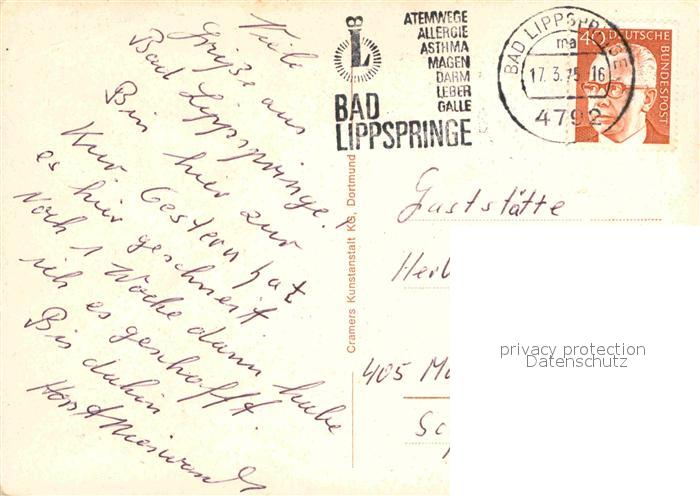 Viele
Grüße aus
Bad Lippspringe!
Bin hier zur
Kur. Gestern hat
es hier geschneit
Noch 1 Woche dann habe
ich es geschafft.
Bis dahin
Horst
ATEMWEGE
ALLERGIE
ASTHMA
MAGEN
DARM
LEBER
GALLE
L
BAD
LIPPSPRINGE
BAD LIPPSPRINGE
ma
17.3.75.16
4792
40 DEUTSCHE
BUNDESPOST
Cramers Kunstanstalt KG, Dortmund
Gaststätte
405
privacy protection
Datenschutz